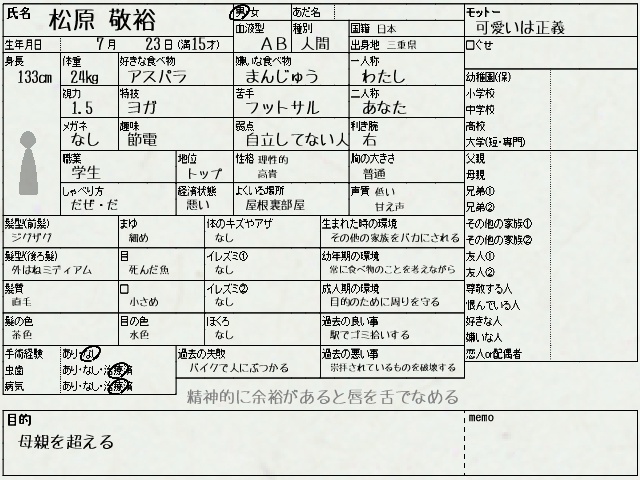 氏名 松原 敬裕 男・女 あだ名 モットー 可愛いは正義
血液型 AB 種別 人間 国籍 日本 口ぐせ
生年月日 7月 23日(満15才) 出身地 三重県
身長 133cm 体重 24kg 好きな食べ物 アスパラ 嫌いな食べ物 まんじゅう 一人称 わたし 幼稚園(保)
視力 1.5 特技 ヨガ 苦手 フットサル 二人称 あなた 小学校
中学校
メガネ なし 趣味 節電 弱点 自立してない人 利き腕 右 高校
大学(短・専門)
職業 学生 地位 トップ 性格 理性的 高貴 胸の大きさ 普通 父親
母親
しゃべり方 だぜ・だ 経済状態 悪い よくいる場所 屋根裏部屋 声質 低い 甘え声 兄弟①
兄弟②
髪型(前髪) ジグザグ まゆ 細め 体のキズやアザ なし 生まれた時の環境 その他の家族をバカにされる その他の家族①
その他の家族②
髪型(後ろ髪) 外はねミディアム 目 死んだ魚 イレズミ① なし 幼年期の環境 常に食べ物のことを考えながら 友人①
友人②
髪質 直毛 口 小さめ イレズミ② なし 成人期の環境 目的のために周りを守る 尊敬する人
恨んでいる人
髪の色 茶色 目の色 水色 ほくろ なし 過去の良い事 駅でゴミ拾いする 好きな人
嫌いな人
手術経験 あり・なし 過去の失敗 バイクで人にぶつかる 過去の悪い事 崇拝されているものを破壊する 恋人or配偶者
虫歯 あり・なし・治療済
病気 あり・なし・治療済
精神的に余裕があると唇を舌でなめる
目的 memo
母親を超える